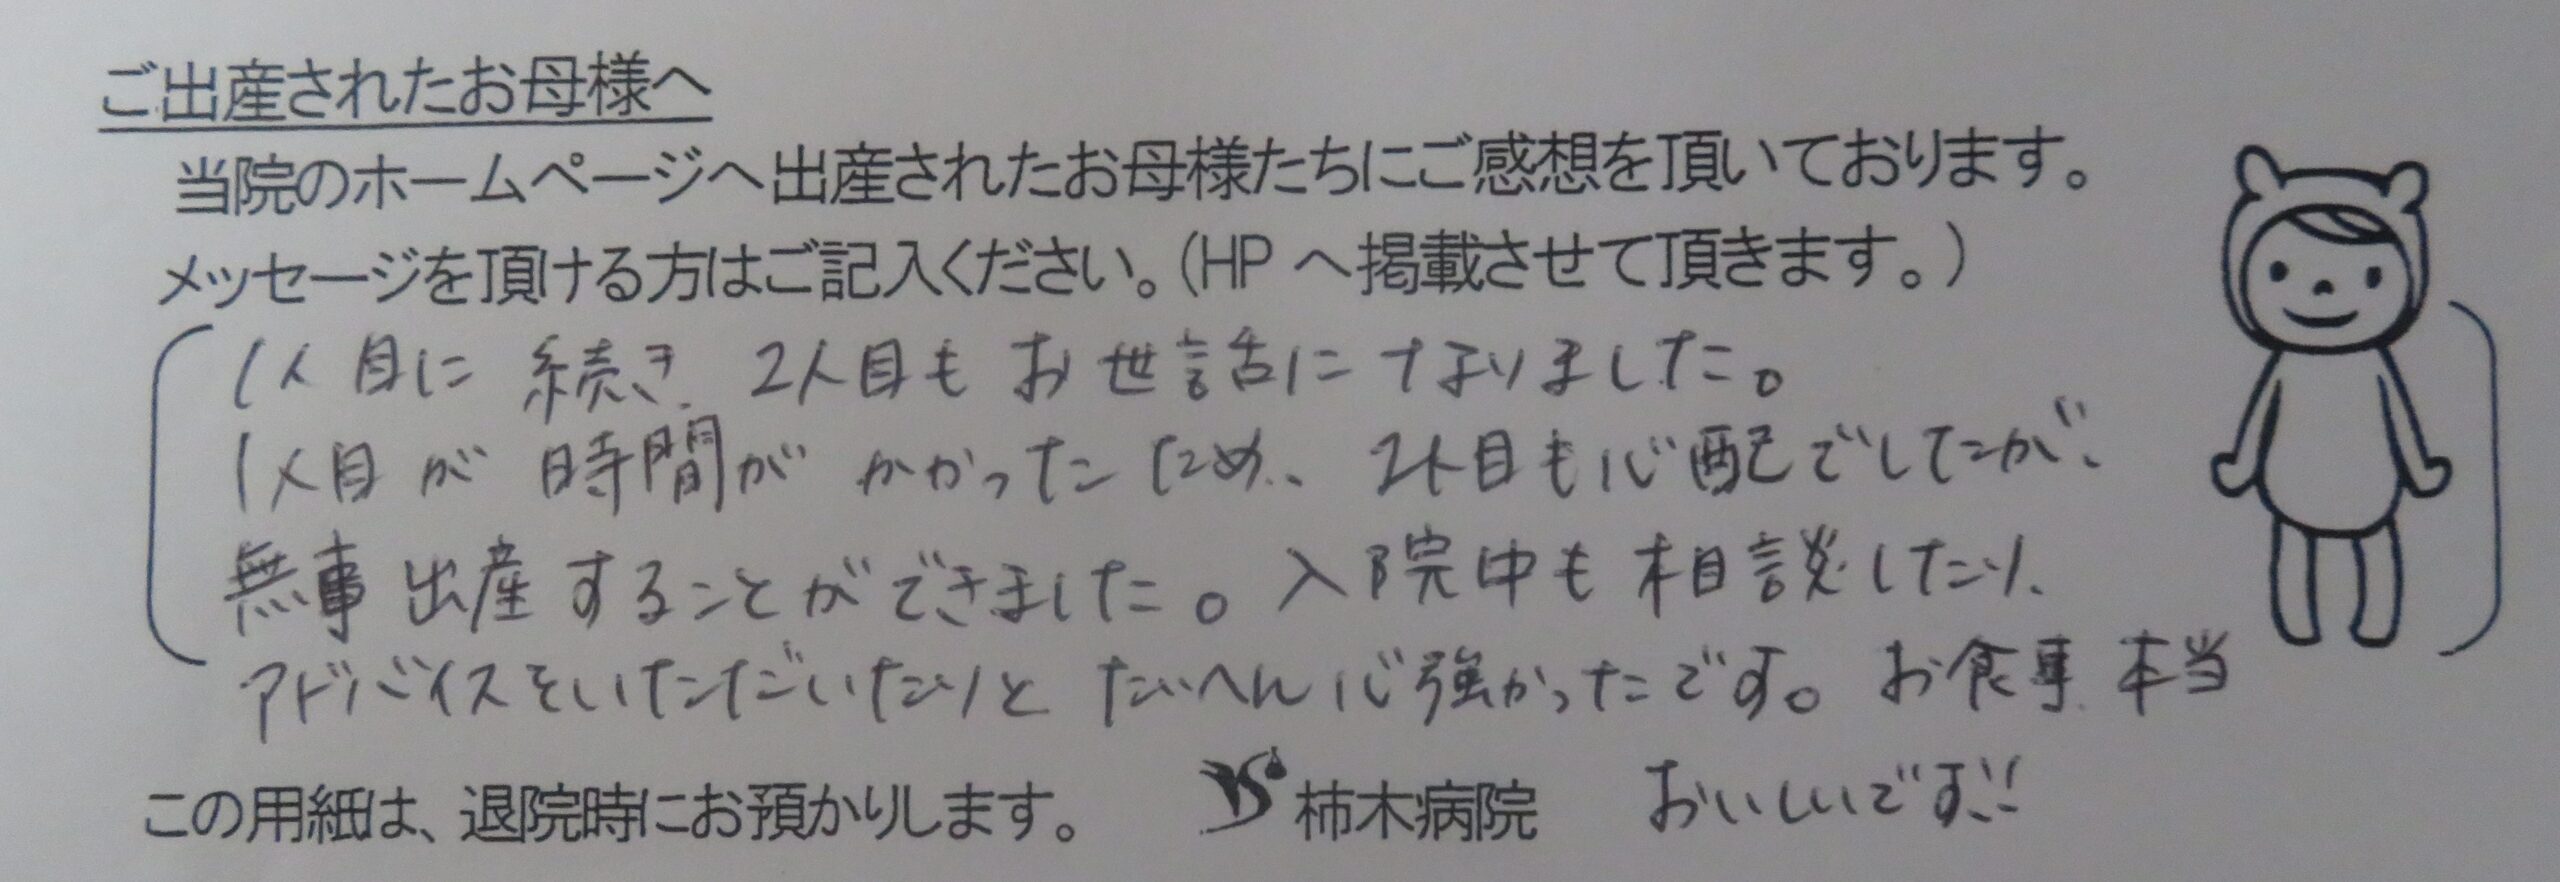 ご出産されたお母様へ
当院のホームページへ出産されたお母様たちにご感想を頂いております。
メッセージを頂ける方はご記入ください。(HP へ掲載させて頂きます。)
1人目に続き、2人目もお世話になりました。
1人目が時間がかかったため、2人目も心配でしたが、
無事出産することができました。入院中も相談したり、
アドバイスをいただいたりと たいへん心強かったです。お食事、本当
おいしいです!!
この用紙は、退院時にお預かりします。 柿木病院